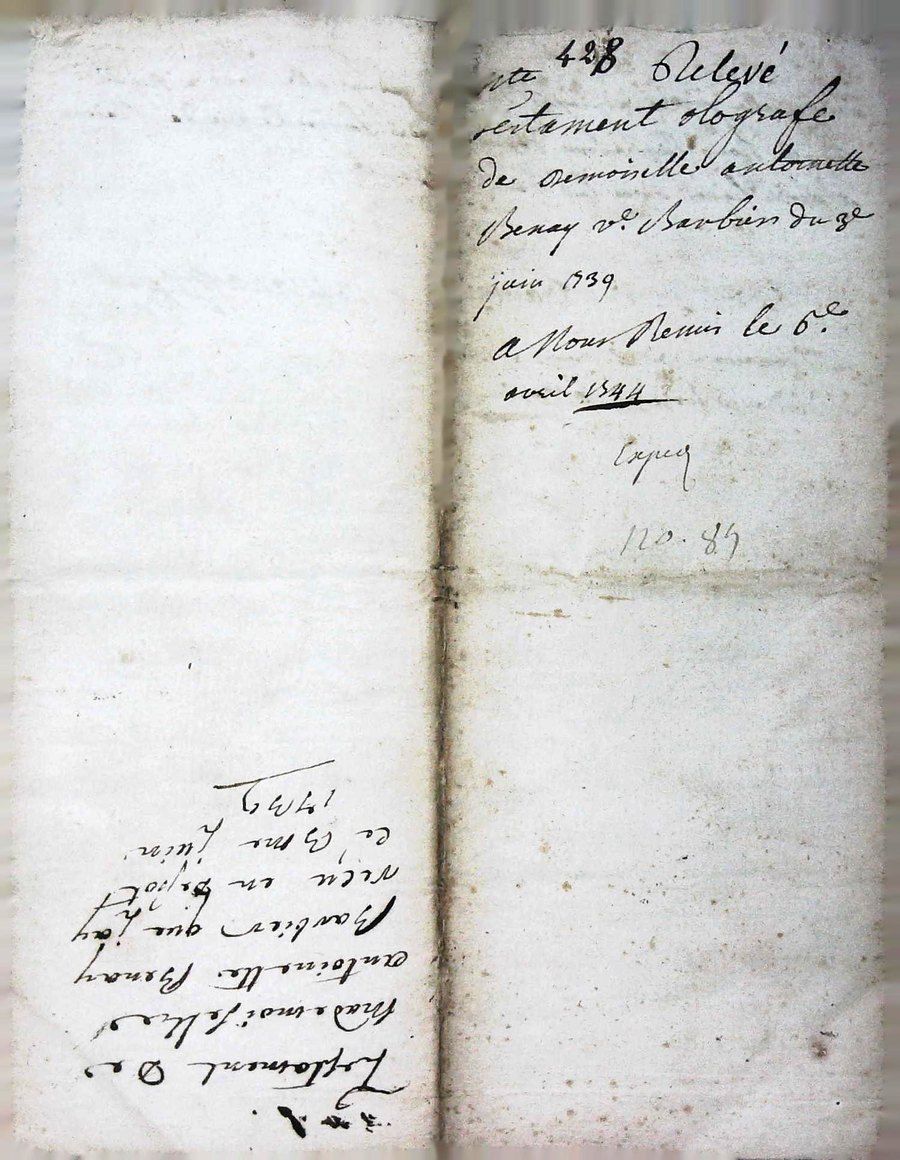 428 Relevé
testament olografe
de demoiselle antoinette
Benay ve. Barbier du 3e
juin 1739
a Nous Remis le 6e.
avril 1744
Exped
120. 85
Testament De
Mademoiselle
antoinette Benay
Barbier que jay
reçu en Depot
ce 3me juin
1739